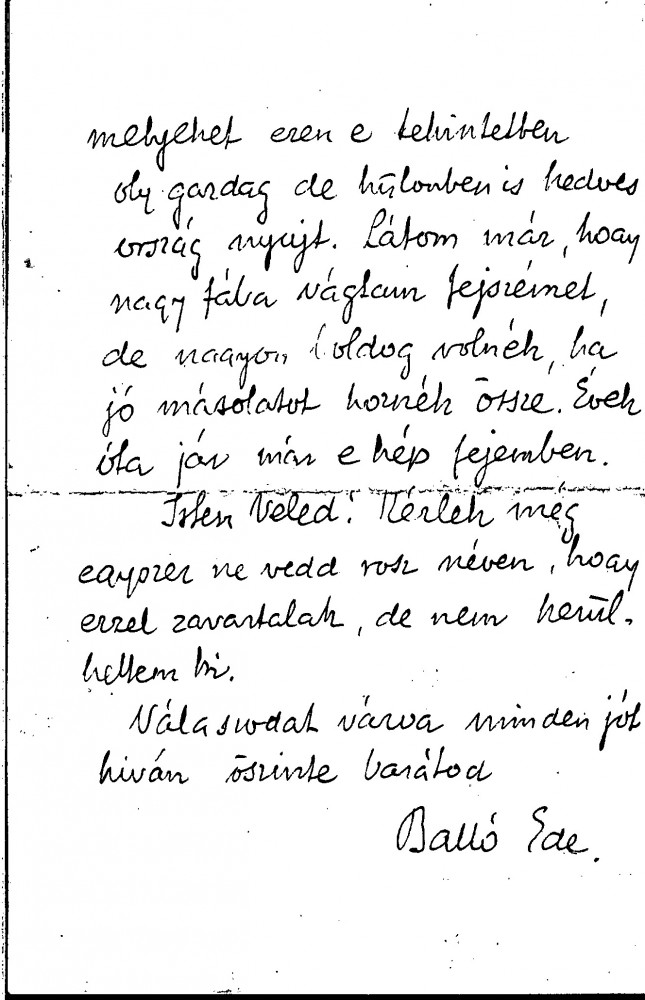 melyeket ezen e tekintetben
oly gazdag de külonben is kedves
ország nyujt. Látom már, hogy
nagy fába vágtam fejszémet,
de nagyon boldog volnék, ha
jó másolatot hoznék össze. Évek
óta jár már e kép fejemben.
Isten Veled! Kérlek még
egyszer ne vedd rosz néven, hogy
ezzel zavartalak, de nem kerül-
hettem ki.
Válaszodat várva minden jót
kiván őszinte barátod
Balló Ede.